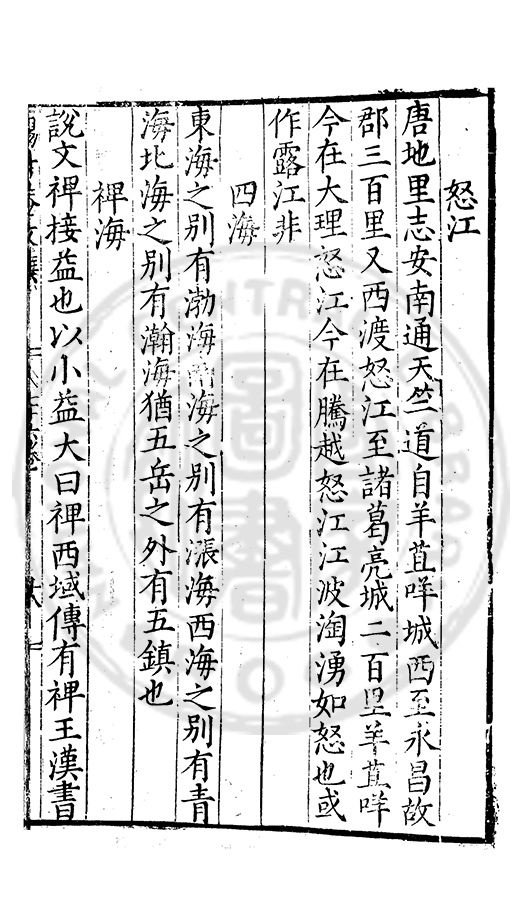 怒江
唐地里志安南通天竺道自羊苴咩城西至永昌故
郡三百里又西渡怒江至諸葛亮城二百里羊苴咩
今在大理怒江今在騰越怒江江波淘湧如怒也或
作露江非
四海
東海之別有渤海南海之別有漲海西海之別有青
海北海之別有瀚海猶五岳之外有五鎮也
裨海
說文裨接益也以小益大曰裨西域傳有裨王漢書